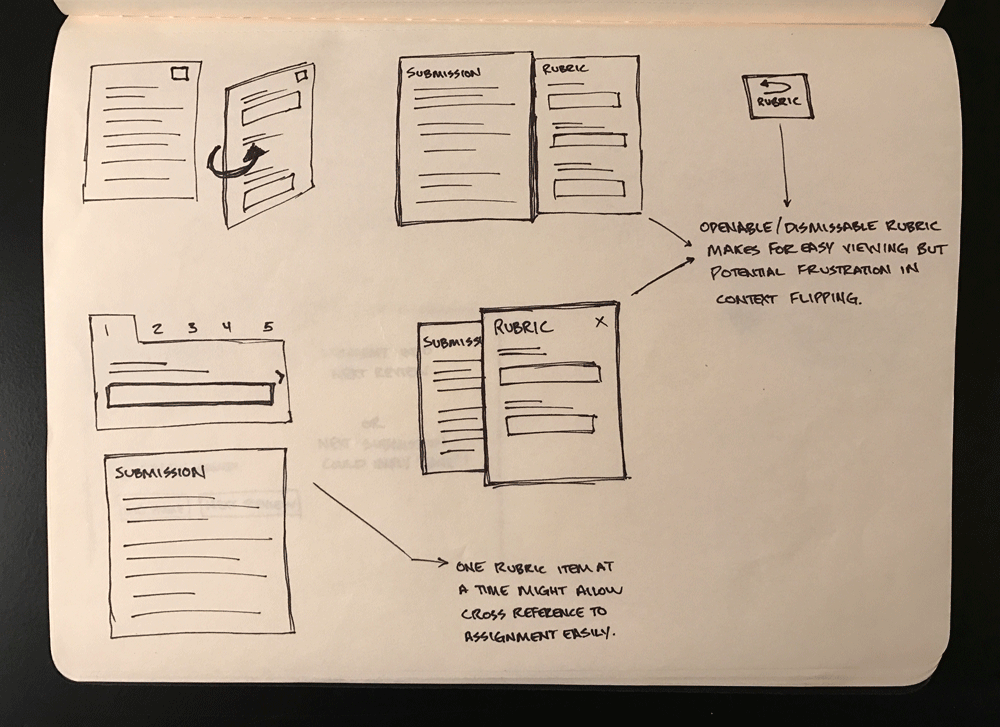 SUBMISSION
RUBRIC
RUBRIC
OPENABLE/DISMISSABLE RUBRIC
MAKES FOR EASY VIEWING BUT
POTENTIAL FRUSTRATION IN
CONTEXT FLIPPING.
1 2 3 4 5
SUBMISSION
SUBMISS
RUBRIC X
ONE RUBRIC ITEM AT
A TIME MIGHT ALLOW
CROSS REFERENCE TO
ASSIGNMENT EASILY.